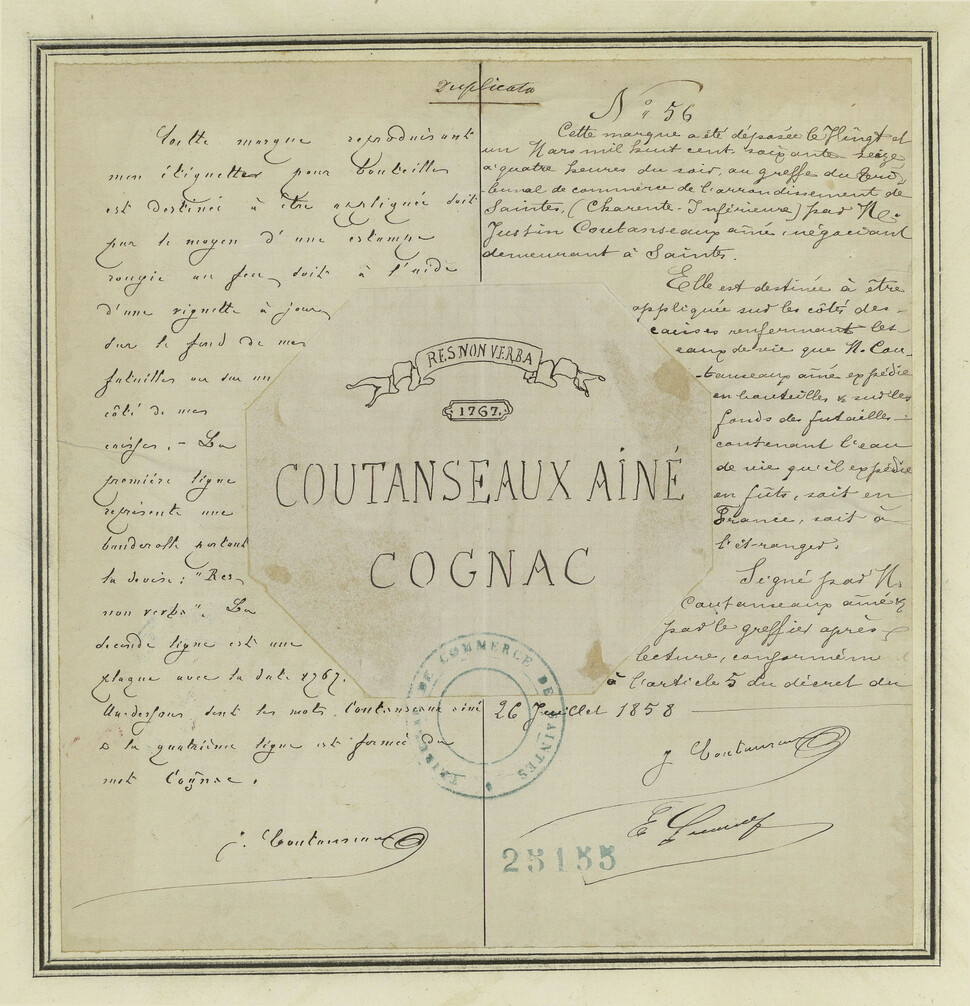 Duplicata
Cette marque reproduisant
mes étiquettes pour bouteilles
est destinée à être appliquée soit
par le moyen d'une estampe
rougie au feu, soit à l'aide
d'une vignette à jour,
sur le fond de mes
futailles ou sur un
côté de mes
caisses. – La
première ligne
représente une
banderolle portant
la devise: "Res
non verba". La
seconde ligne est une
plaque avec la date 1767.
Au-dessous sont les mots Coutanseaux ainé
& la quatrième ligne est formée du
mot Cognac.
J. Coutanseaux
RES NON VERBA
1767.
COUTANSEAUX AÎNÉ
COGNAC
N° 56
Cette marque a été déposée le Vingt et
un Mars mil huit cent soixante seize
à quatre heures du soir, au greffe du Tri-
bunal de commerce de l'arrondissement de
Saintes, (Charente-Inférieure) par M.
Justin Coutanseaux aîné, négociant
demeurant à Saintes.
Elle est destinée à être
appliquée sur les côtés des
caisses renfermant les
eaux de vie que M. Cou-
tanseaux aîné expédie
en bouteilles & sur les
fonds des futailles
contenant l'eau
de vie qu'il expédie
en fûts, soit en
France, soit à
l'étranger.
Signé par M.
Coutanseaux aîné &
par le greffier après
lecture, conformém
à l'article 5 du décret du
26 Juillet 1858
J. Coutanseaux
E
TRIBUNAL DE COMMERCE DE SAINTES
25155